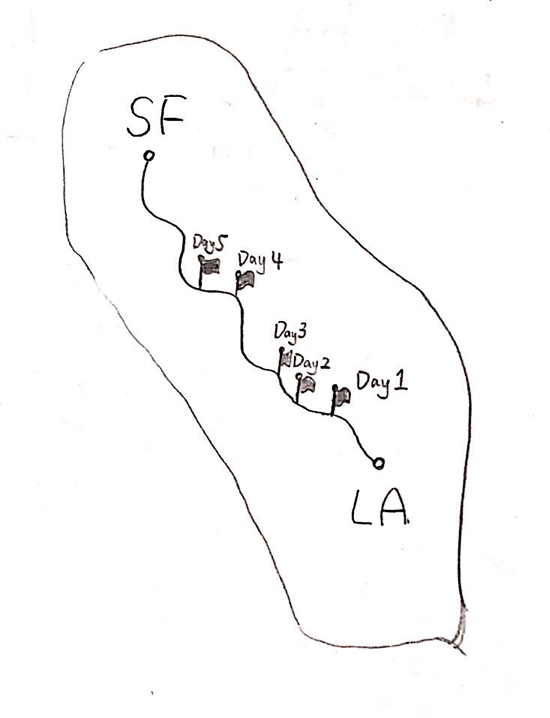 SF
Day5
Day 4
Day3
Day2
Day1
LA